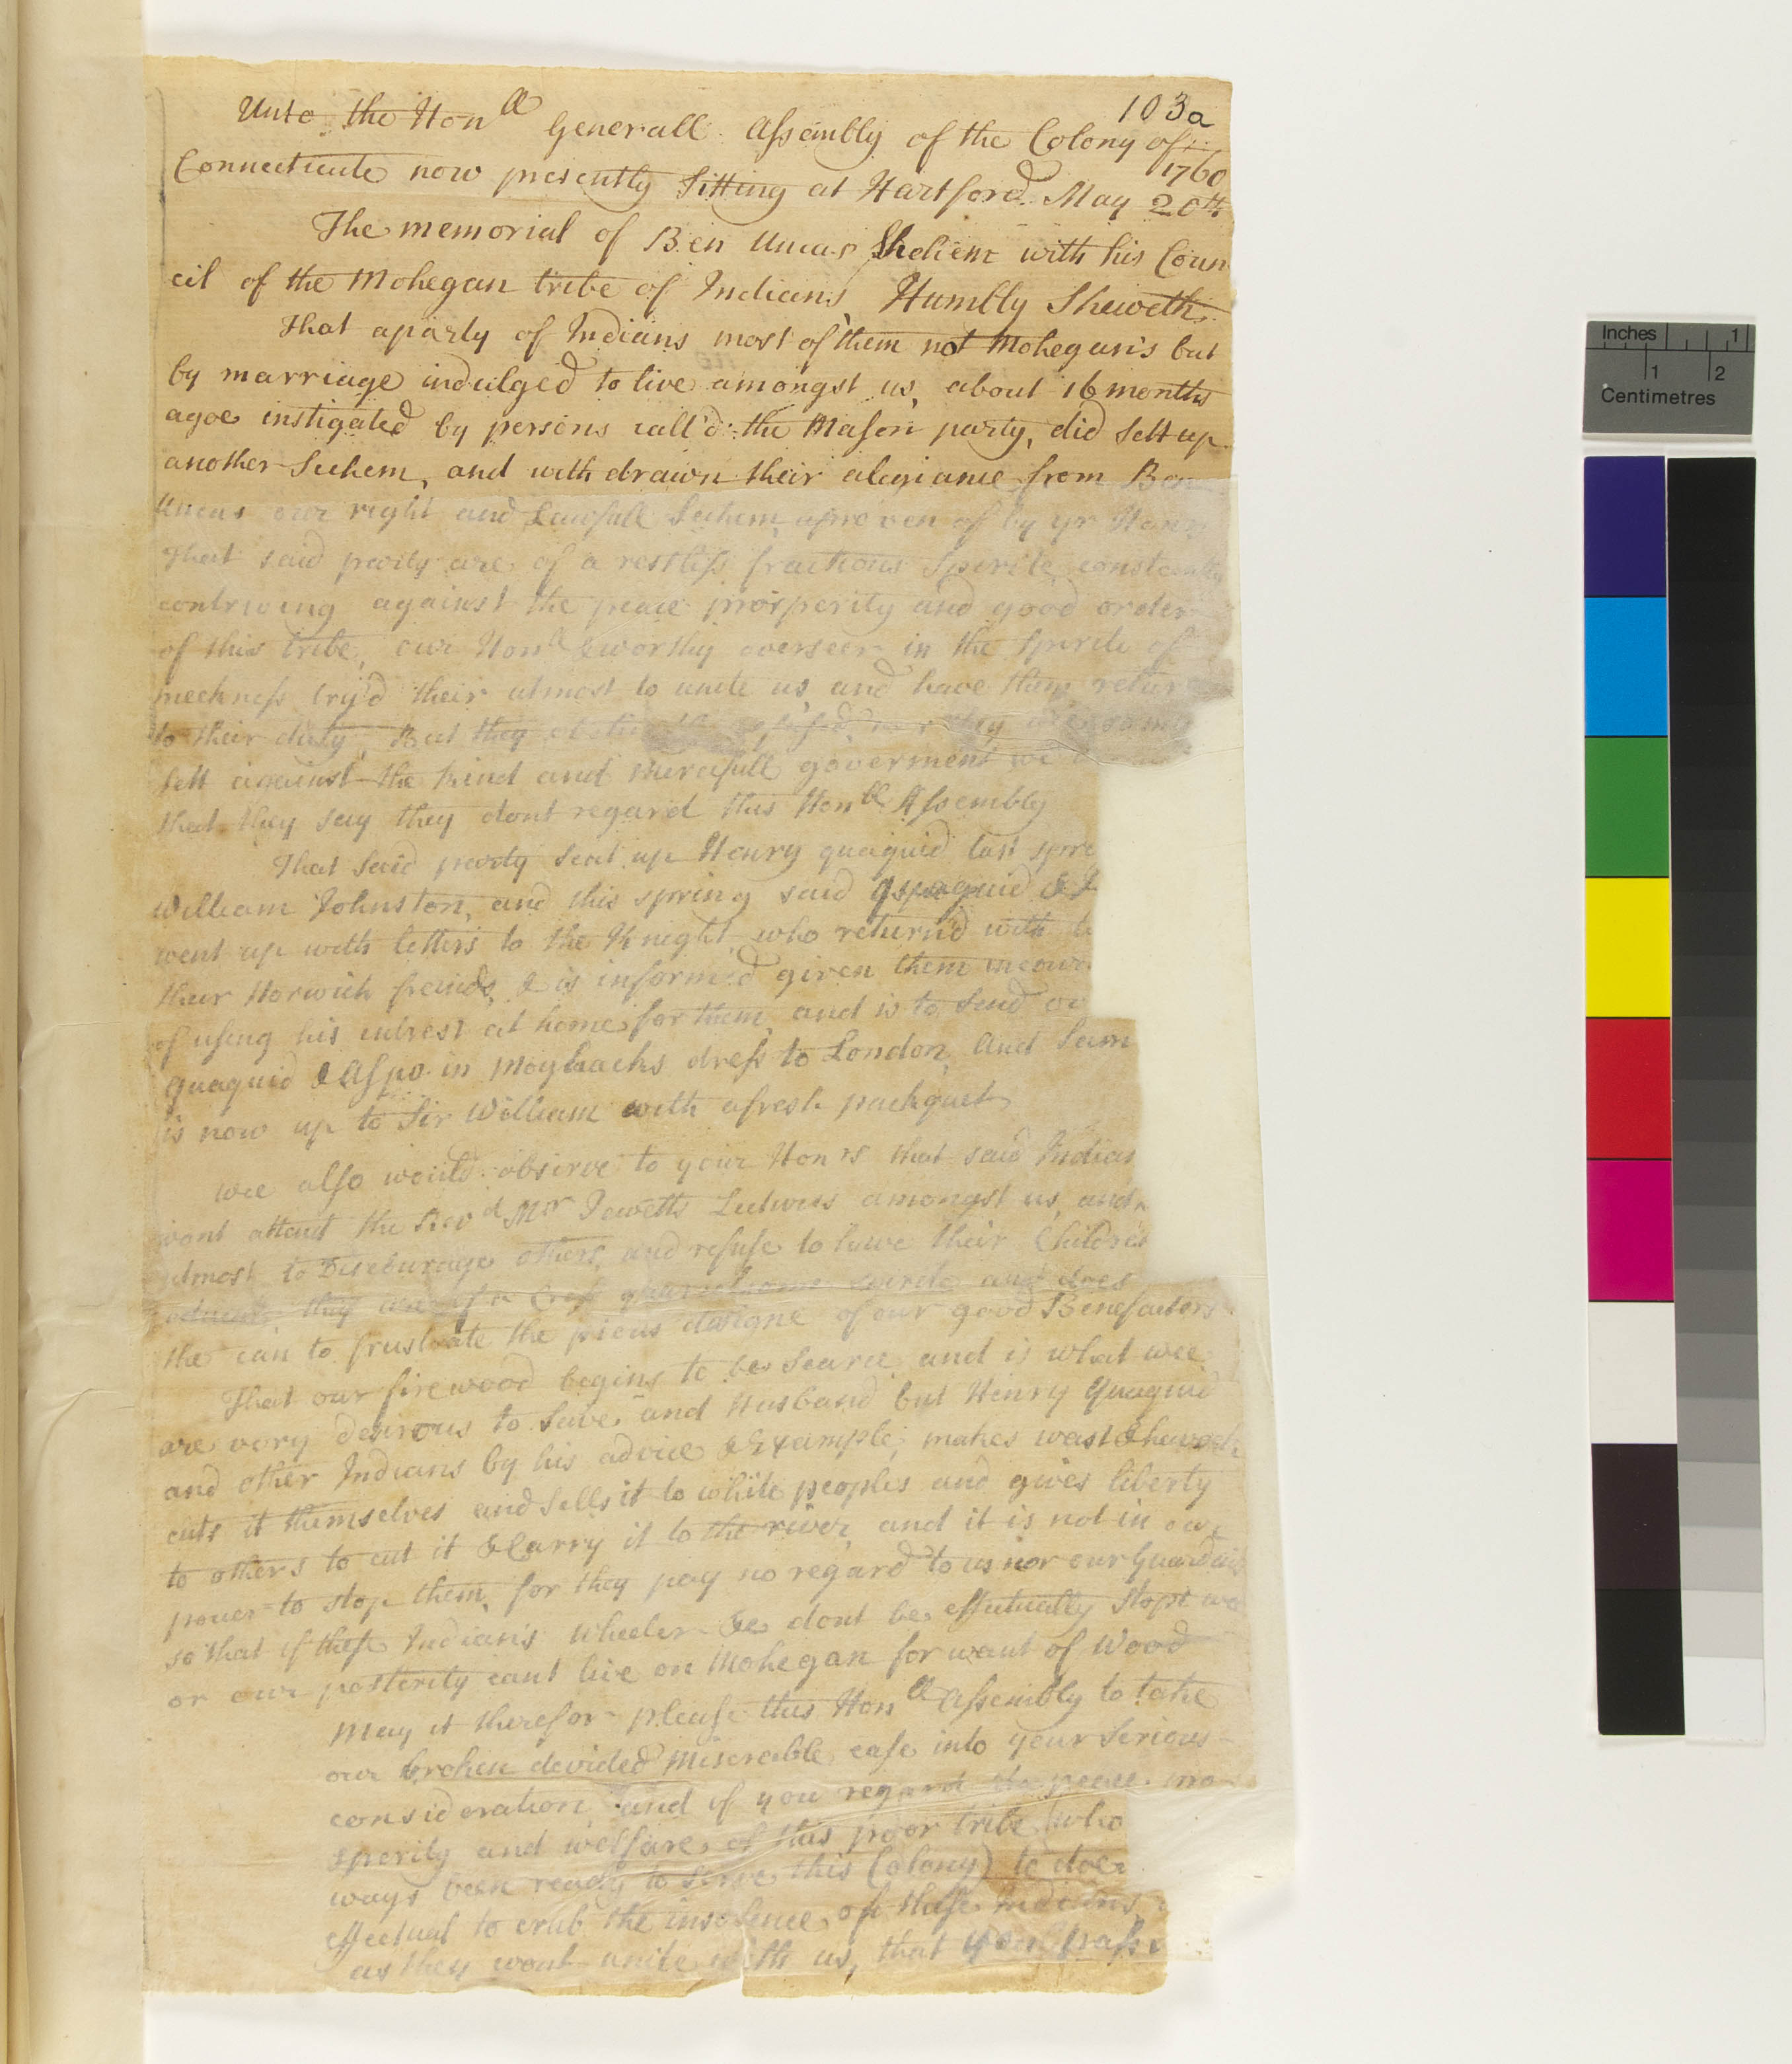 103a
Unto the Honll Generall Assembly of the Colony of
Connecticute now presently Sitting at Hartford May 20th 1760
The memorial of Ben Uncas Shchem with his Coun
cil of the Mohegan tribe of Indians, Humbly Sheweth,
That a party of Indians most of them not Mohegan's but
by marriage indulged to live amongst us, about 16 months
agoe instigated by persons call'd the Mason party, did Sett up
another Sechem, and with drawn their alegiance from Ben
Uncas our right and Lawfull Sechem aproven of by yr Honrs
That said party are of a restless fractious Spirite constantly
contriving against the peace prosperity and good order
of this tribe, our Honle & worthy overseer in the Spirite of
meekness try'd their utmost to unite us and have them return
to their duty, But they refused, they are so much
Sett against the kind and mercifull goverment we
that they say they dont regard this Honble Assembly
That said party Sent up Henry quaquid last spr
William Johnston, and this spring said quaquid &
went up with letters to the Knight, who return'd with
their Norwich freinds, & is informed given them incour
of using his intrest at home for them, and is to Send
quaquid & Aspo in Moyhacks dress to London, And Sam
is now up to Sir William with a fresh packquet,
Wee also would observe to your Honrs that said Indian
wont attend the Revd Mr Jewetts Lectures amongst us, and
utmost to Discourage others, and refuse to have their Children
they are of a quarrelsome spirite and does
the can to frustrate the pious designe of our good Benefactors
That our firewood begins to be Scarce and is what wee
are very desirous to Save, and Husband but Henry Quaquid
and other Indians by his advice & Example, makes wast & havock
cuts it themselves and Sells it to white peoples and gives liberty
to others to cut it & Carry it to the river, and it is not in our
power to stop them, for they pay no regard to us nor our Guardians
so that if these Indian's Wheeler &c dont be effectually Stopt we
or our posterity cant live on Mohegan for want of Wood
May it therefor please this Honll Assembly to take
our broken devided Miserable case into your Serious
consideration, and if you regard the peace pro
sperity and welfare of this poor tribe (who
ways been ready to Serve this Colony) to doe
effectual to crub the insolence of those Indians,
as they wont unite with us, that you pass